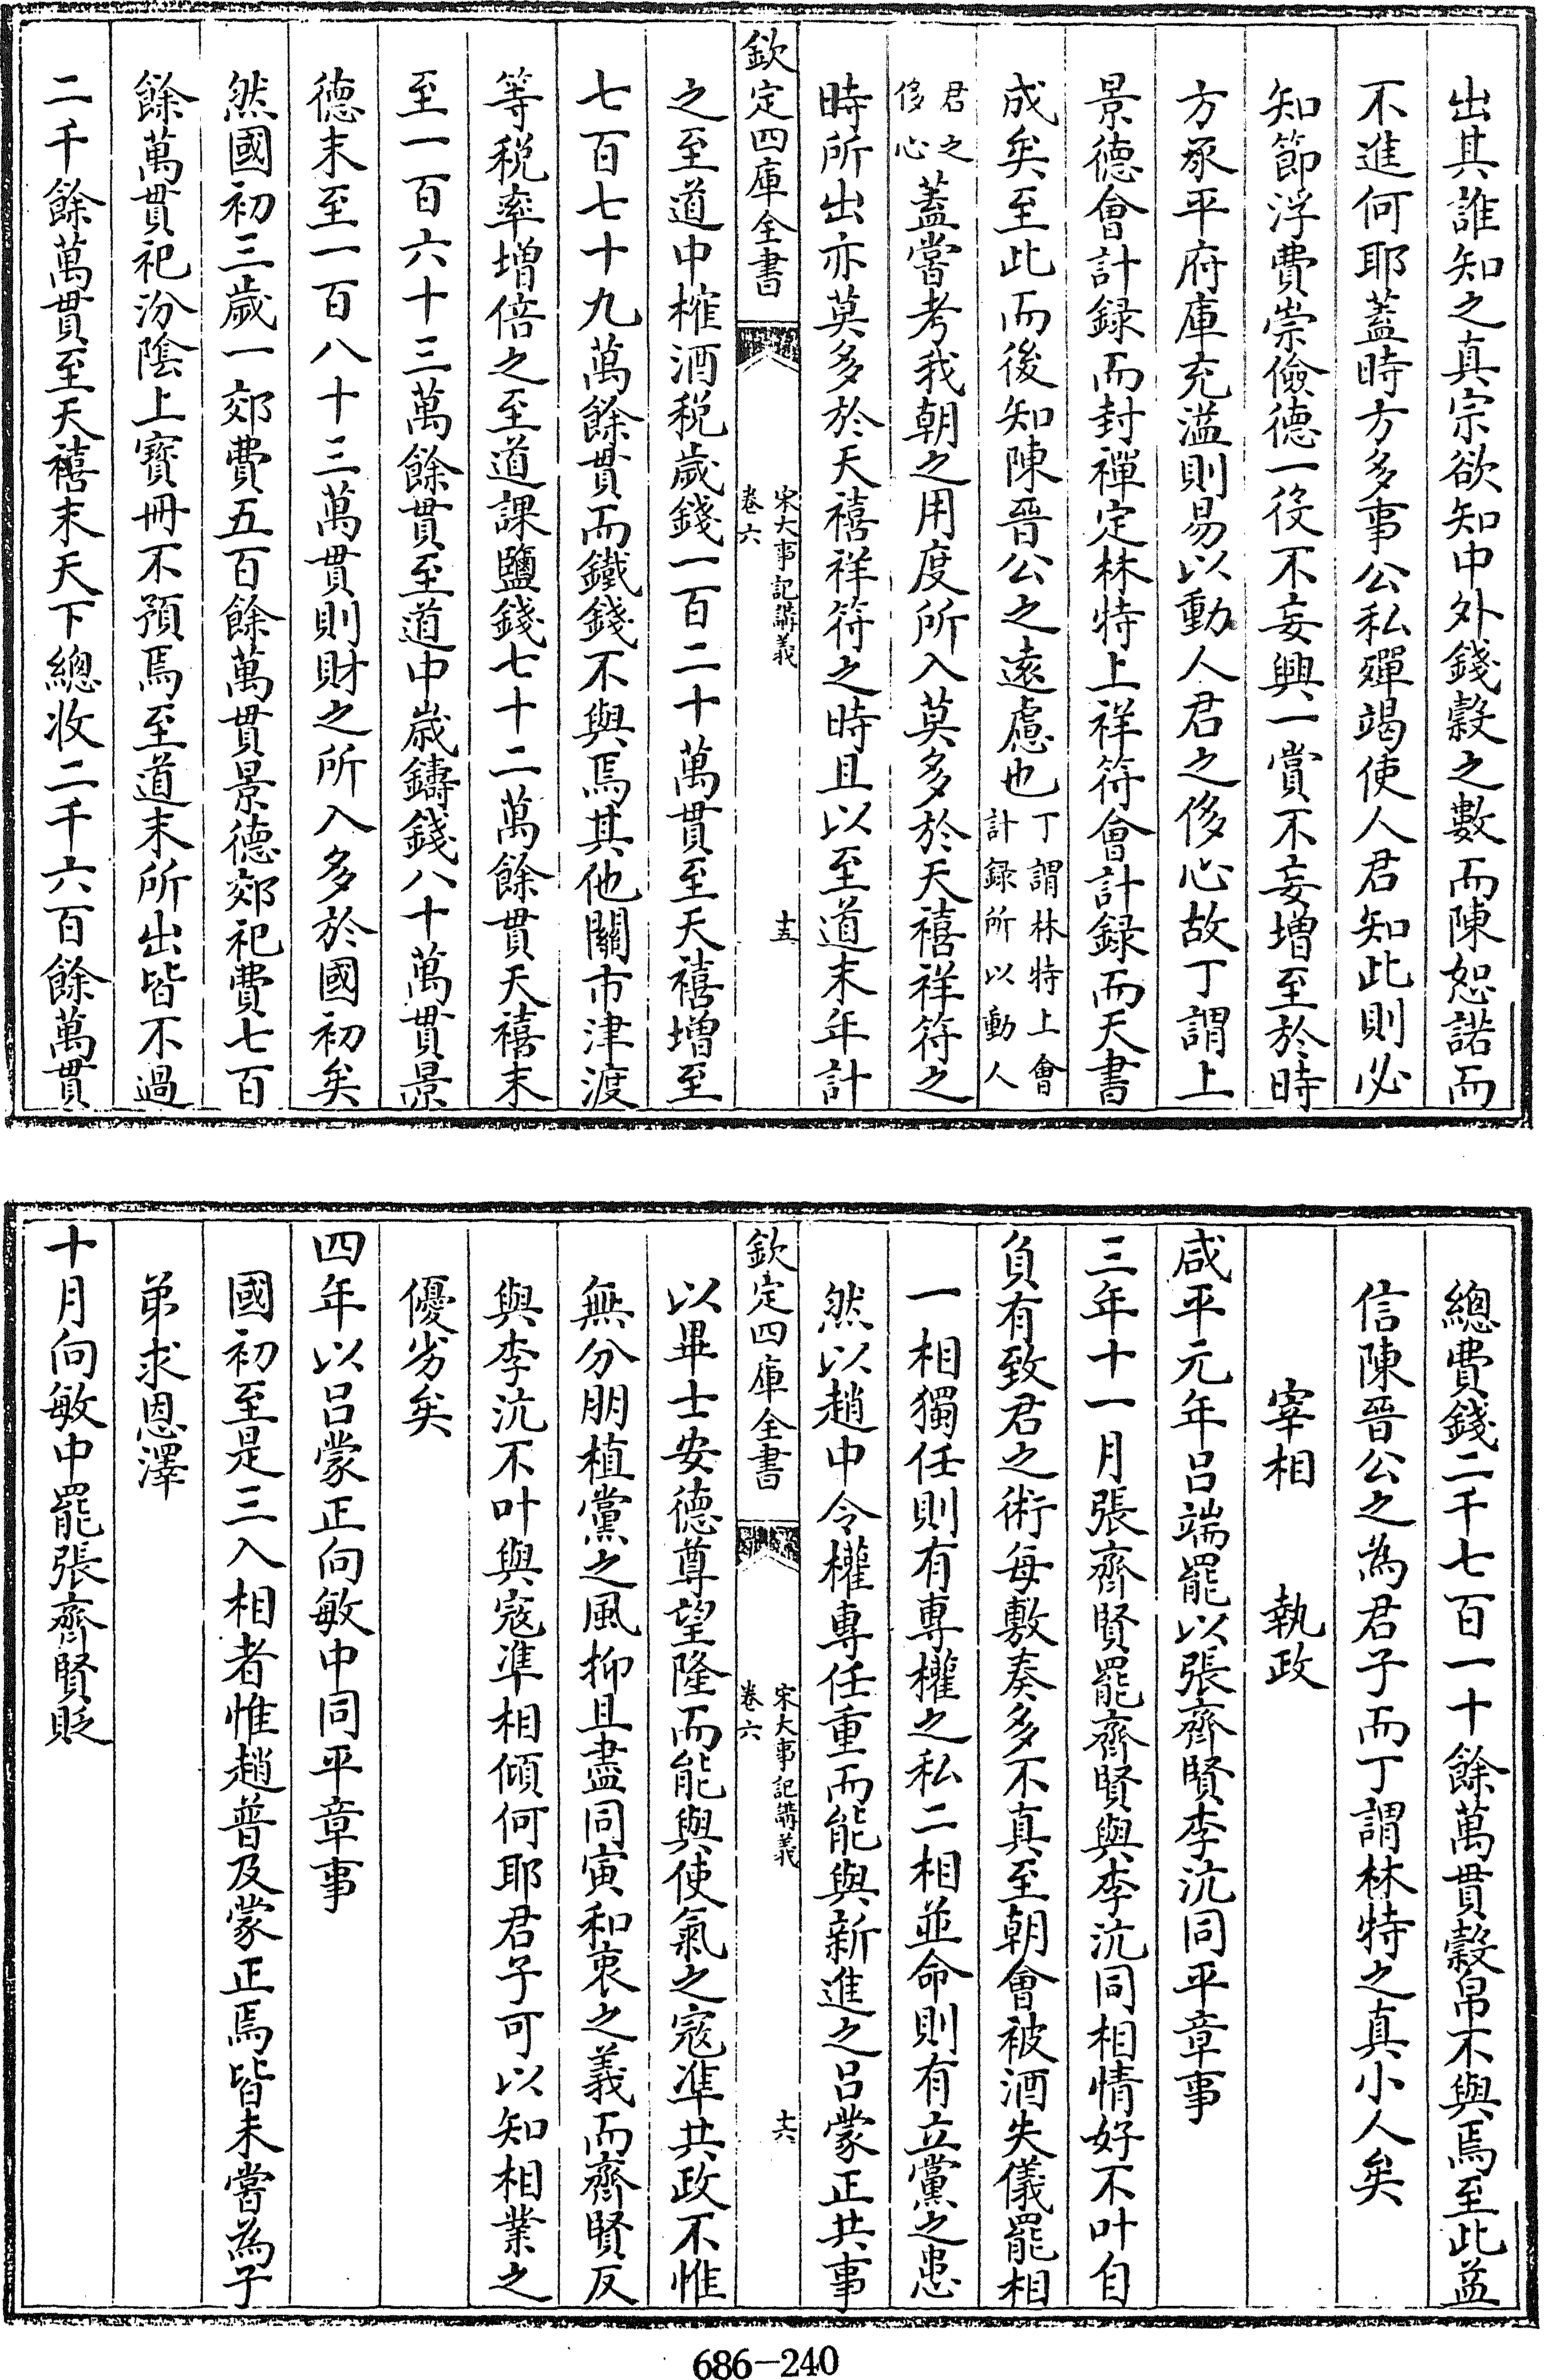 出其誰知之真宗欲知中外錢穀之數而陳恕諾而
不進何耶蓋時方多事公私殫竭使人君知此則必
知節浮費崇儉德一役不妄興一賞不妄增至於時
方承平府庫充溢則易以動人君之侈心故丁謂上
景德會計録而封禪定林特上祥符會計録而天書
成矣至此而後知陳晉公之遠慮也丁謂林特上會計録所以動人
君之侈心蓋嘗考我朝之用度所入莫多於天禧祥符之
時所出亦莫多於天禧祥符之時且以至道末年計
欽定四庫全書
宋大事記講義
卷六
十五
之至道中榷酒税歲錢一百二十萬貫至天禧增至
七百七十九萬餘貫而鐵錢不與焉其他關市津渡
等税率增倍之至道課鹽錢七十二萬餘貫天禧末
至一百六十三萬餘貫至道中歲鑄錢八十萬貫景
德末至一百八十三萬貫則財之所入多於國初矣
然國初三歲一郊費五百餘萬貫景德郊祀費七百
餘萬貫祀汾陰上寳冊不預焉至道末所出皆不過
二千餘萬貫至天禧末天下總收二千六百餘萬貫
總費錢二千七百一十餘萬貫穀帛不與焉至此益
信陳晉公之為君子而丁謂林特之真小人矣
宰相　執政
咸平元年吕端罷以張齊賢李沆同平章事
三年十一月張齊賢罷齊賢與李沆同相情好不叶自
負有致君之術每敷奏多不真至朝會被酒失儀罷相
一相獨任則有專權之私二相並命則有立黨之患
然以趙中令權專任重而能與新進之吕蒙正共事
欽定四庫全書
宋大事記講義
卷六
十六
以畢士安德尊望隆而能與使氣之寇準共政不惟
無分朋植黨之風抑且盡同寅和衷之義而齊賢反
與李沆不叶與寇準相傾何耶君子可以知相業之
優劣矣
四年以吕蒙正向敏中同平章事
國初至是三入相者惟趙普及蒙正焉皆未嘗為子
弟求恩澤
十月向敏中罷張齊賢貶
686-240